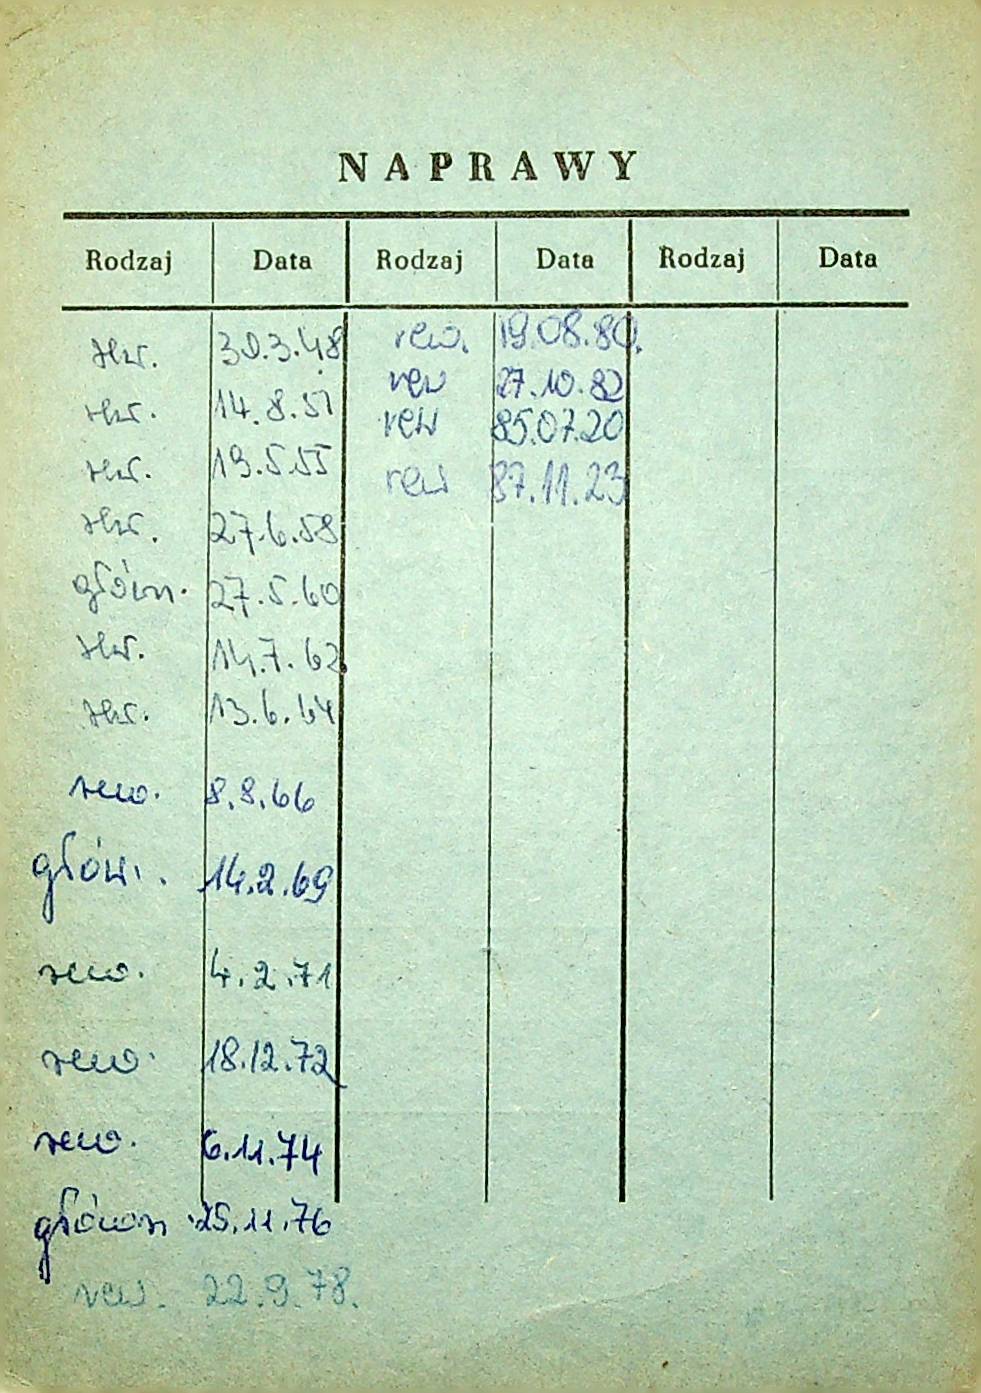 NAPRAWY
Rodzaj Data Rodzaj Data Rodzaj Data
30.3.48
14.8.51
19.5.55
27.6.58
główn. 27.5.60
14.7.62
13.6.64
rew. 8.8.66
główn. 14.2.69
rew. 4.2.71
rew. 18.12.72
rew. 6.11.74
główn 25.11.76
rew. 22.9.78.
rew. 19.08.80.
rew 27.10.82
rew 85.07.20
rew 87.11.23